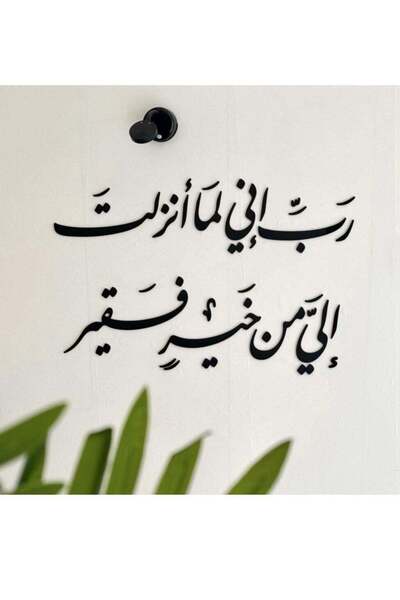 رَبِّ إني لمَا أنزلتَ
إليَّ من خَيرٍ فَقير